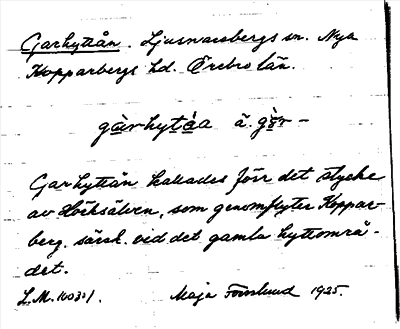 Garhyttån. Ljusnarsbergs sn. Nya
Kopparbergs hd. Örebro län.
gàrhytåa ä. gòr-
Garhyttån kallades förr det stycke
av Hörksälven, som genomflyter Koppar-
berg. särsk. vid det gamla hyttområ-
det.
L.M. Maja Forsslund 1925.